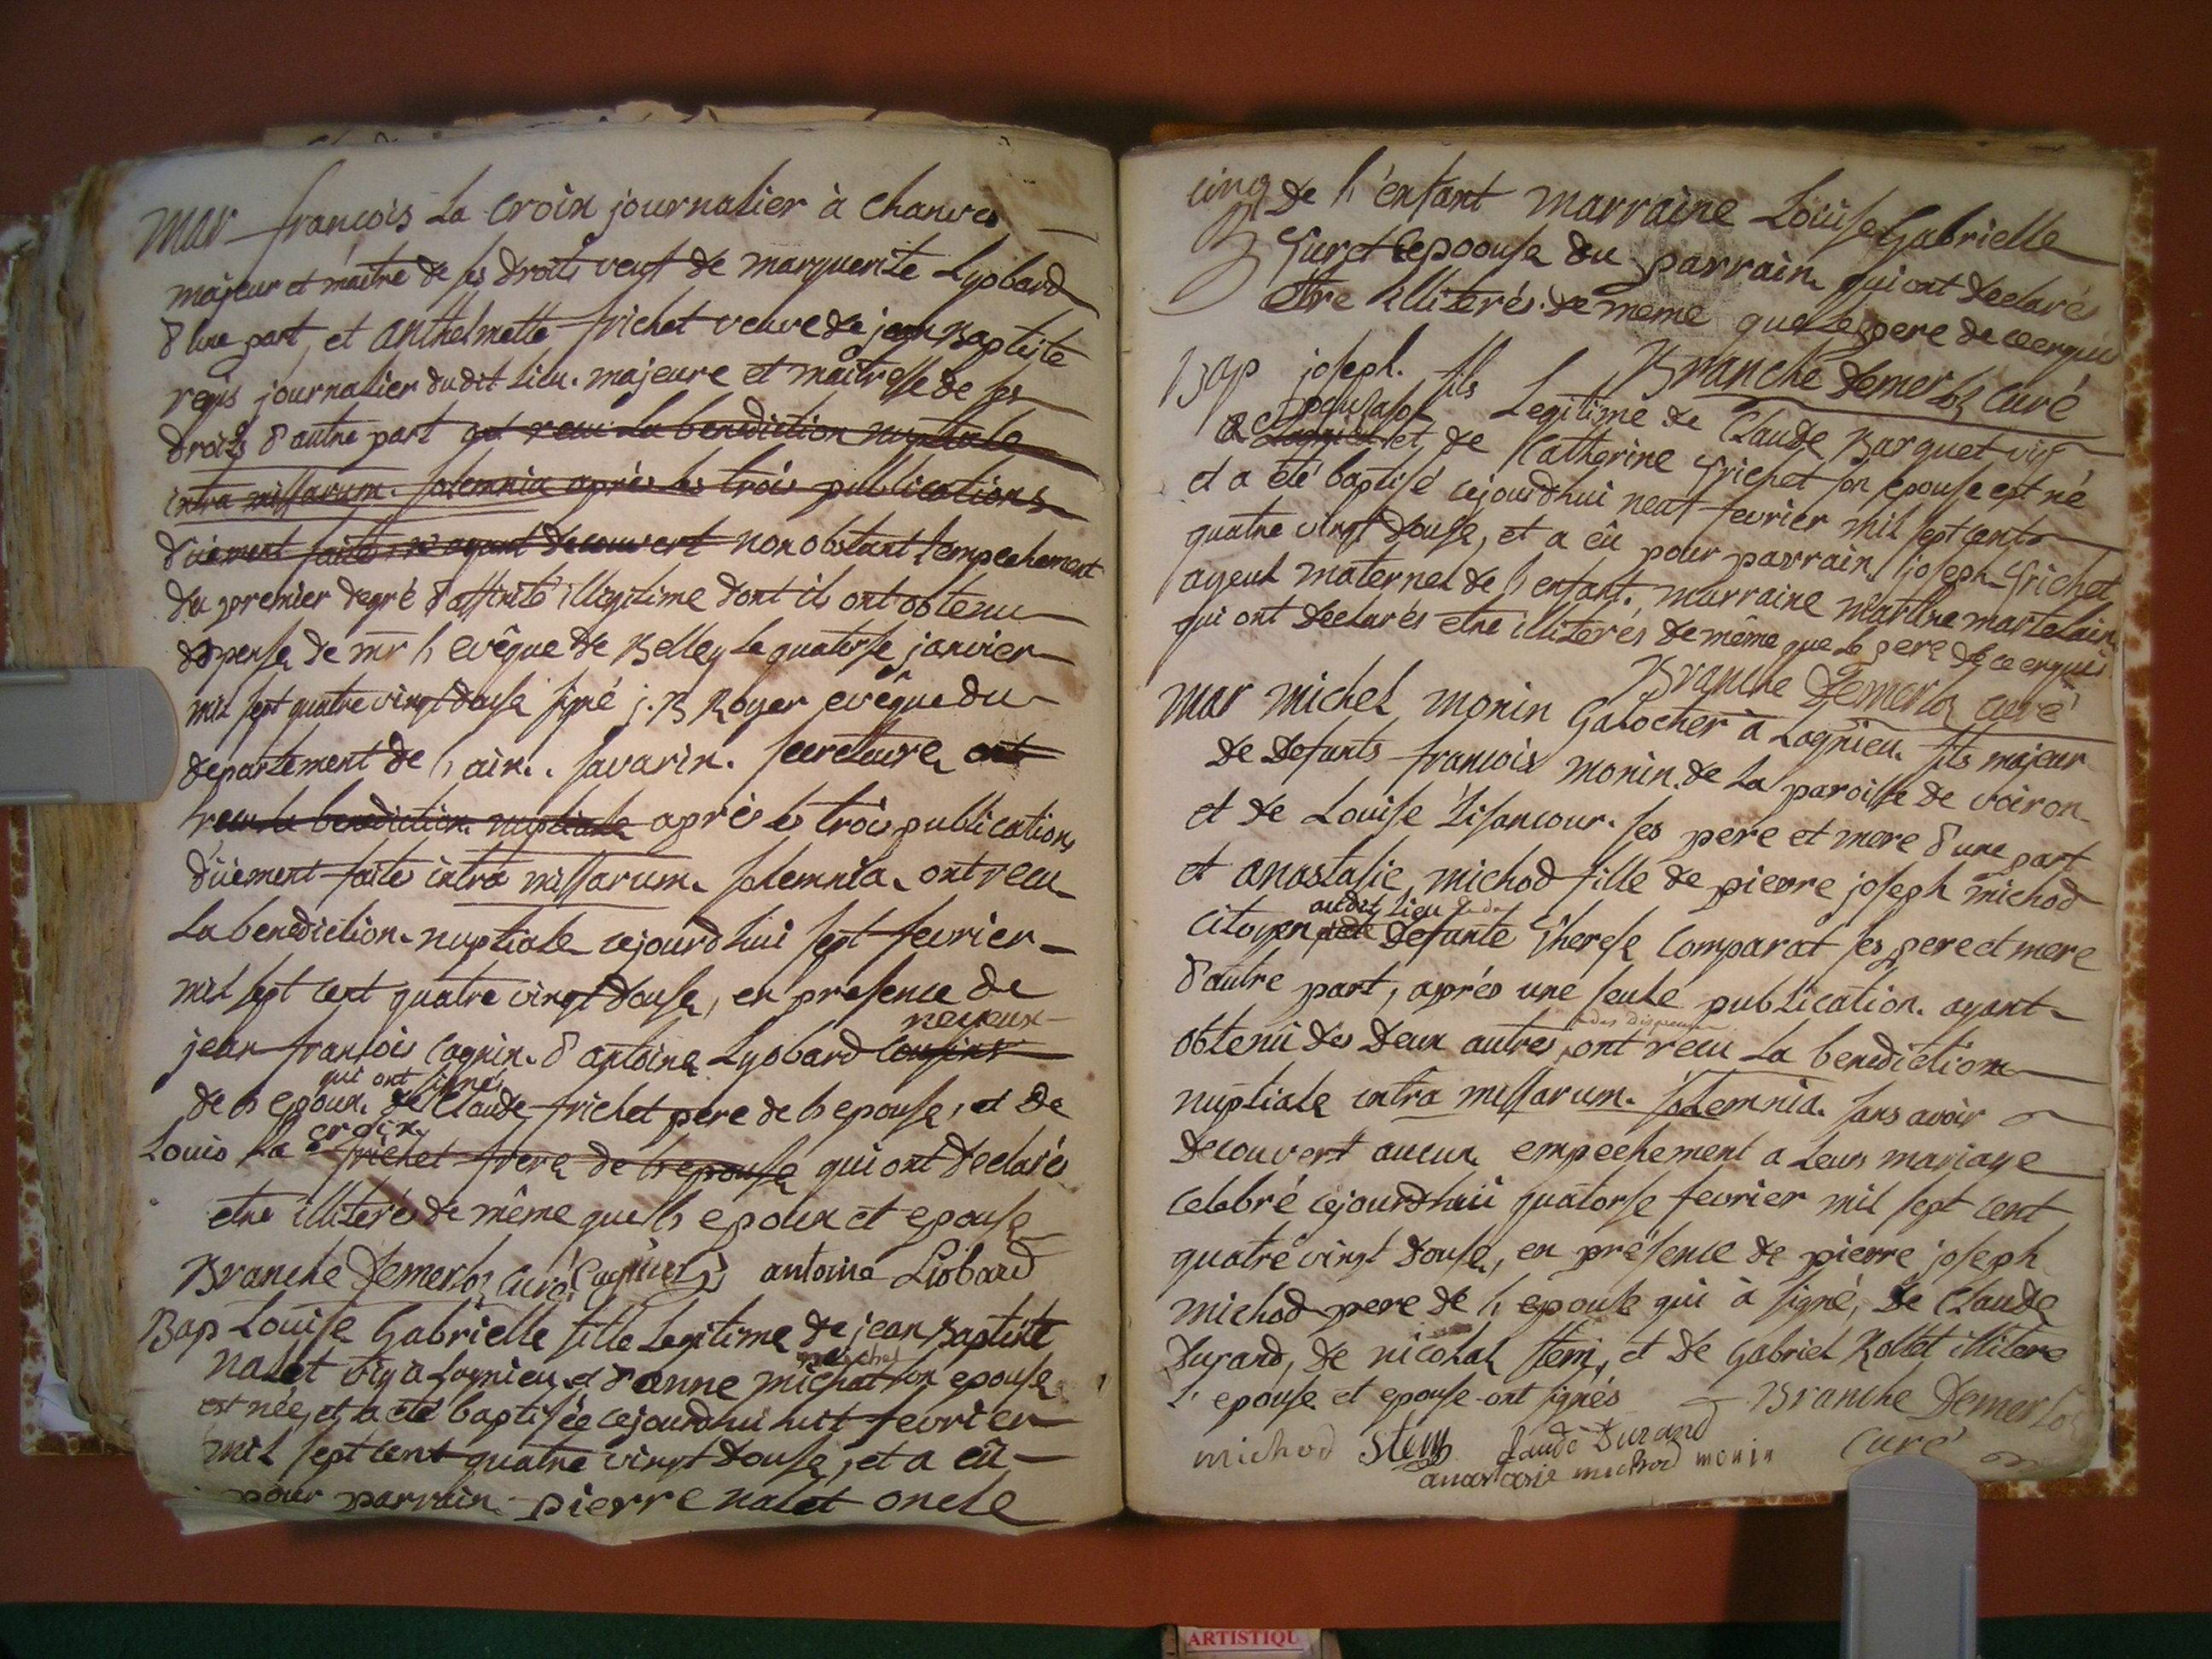 mar françois La croix journalier à chanves
majeur et maitre de ses droits veuf de marguerite Lyobard
d'une part, et anthelmette frichet veuve de jean Baptiste
regis journalier dudit Lieu. majeure et maitresse de ses
droits d'autre part ont recu La benediction nuptiale
intra missarum. solemnia après les trois publications
düement faites n'ayant decouvert nonobstant l'empechement
du premier degré d'affinité illegitime dont ils ont obtenu
dispense de mr l'evêque de Belley le quatorse janvier
mil sept quatre vingt douse signé j.B Royer evêque du
departement de l'ain. savarin. secretaire ont
recu la benediction nuptiale après les trois publications
düement faites intra missarum. solemnia. ont recu
La benediction nuptiale cejourd'hui sept fevrier
mil sept cent quatre vingt douse, en presence de
neveux
jean françois cagnin. d'antoine Lyobard cousins
qui ont signés
de l'epoux. de Claude frichet pere de l'epouse, et de
croix
Louis La frichet frere de l'epouse qui ont declarés
etre illiterés de même que l'epoux et epouse
Branche Demerloz curé antoine Liobard
Bap Louise Gabrielle fille legitime de jean Baptiste
Nalet vig a Lagnieu et d'anne michat son epouse
est née, et a été baptisée cejourdhui huit fevrier
mil sept cent quatre vingt douse, et a eü
pour parrain pierre nalet oncle
cinq
de l'enfant marraine Loüise Gabrielle
epoouse du parrain qui ont declarés
etre illiterés de meme que le pere de ce enquis
Branche Demerloz Curé
Bap joseph. fils Legitime de Claude Barquet vig
a Lagnieu et de Catherine frichet son epouse est né
et a été baptisé cejourdhui neuf fevrier mil sept cent
quatre vingt douse, et a eü pour parrain joseph frichet
ayeul maternel de l'enfant. marraine martine martelain
qui ont declarés etre illiterés de même que le pere de ce enquis
Branche Demerloz curé
mar michel monin Galocher à Lagnieu. fils majeur
de defunts françois monin. de la paroisse de voiron
et de Louise Lisancour. ses pere et mere d'une part
et anastasie michod fille de pierre joseph michod
audit Lieu
citoyen defunte Therese Comparat ses pere et mere
d'autre part, après une seule publication. ayant
obtenü des deux autres, ont recu la benediction
nuptiale intra missarum. solemnia. sans avoir
decouvert aucun empechement a leurs mariage
celebré cejourdhui quatorse fevrier mil sept cent
quatre vingt douse, en présence de pierre joseph
michod pere de l'epouse qui à signé, de Claude
Durand, de nicolas stem, et de Gabriel Rollet illitere
l'epouse et epouse ont signés Branche Demerloz
michod Stem claude Durand Curé
anastasie michod monin
ARTISTIQU